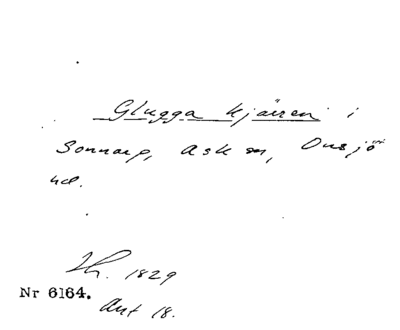 Glugga kjärren i
Sonnarp, Ask sn, Onsjö
hd.
Th. 1829
Nr 6164.
Ant 18.